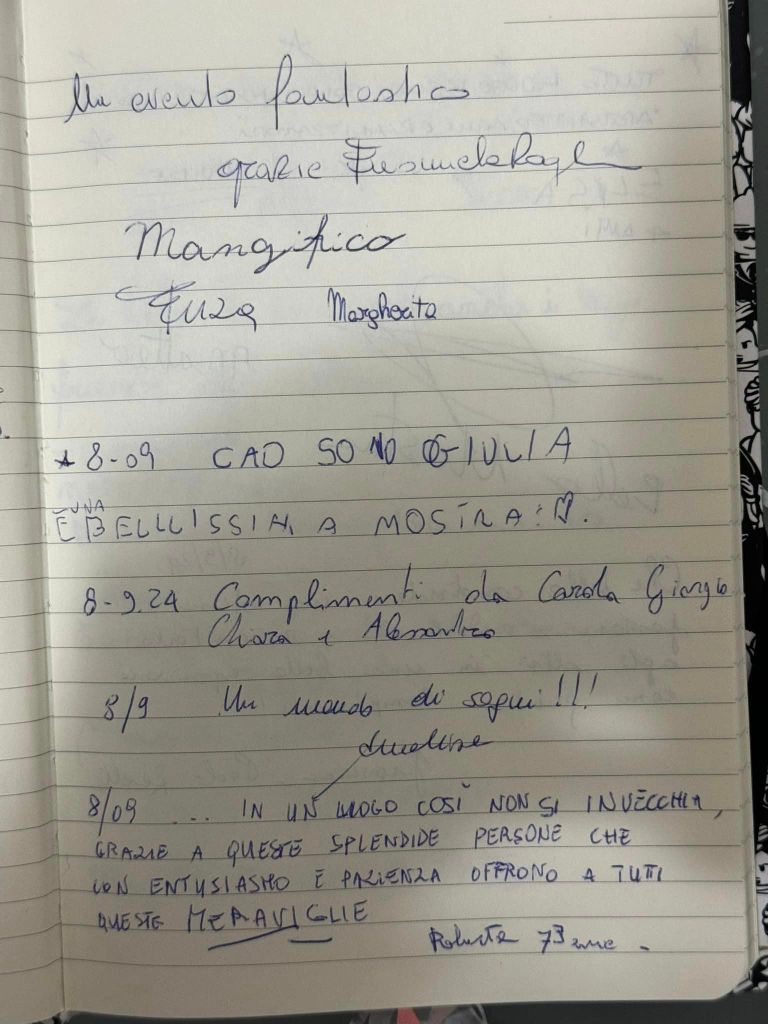 Un evento fantastico
grazie
Mangifico
Margherita
8-09 CAO SONO GIULIA
È UNA
BELLISSIMA MOSTRA:
8-9.24 Complimenti da Carola Giorgio
Chiara e Alessandro
8/9 Un mondo di sogni!!!
8/09 ... IN UN LUOGO COSÌ NON SI INVECCHIA,
GRAZIE A QUESTE SPLENDIDE PERSONE CHE
CON ENTUSIASMO E PAZIENZA OFFRONO A TUTTI
QUESTE MERAVIGLIE
Roberta 73 anni